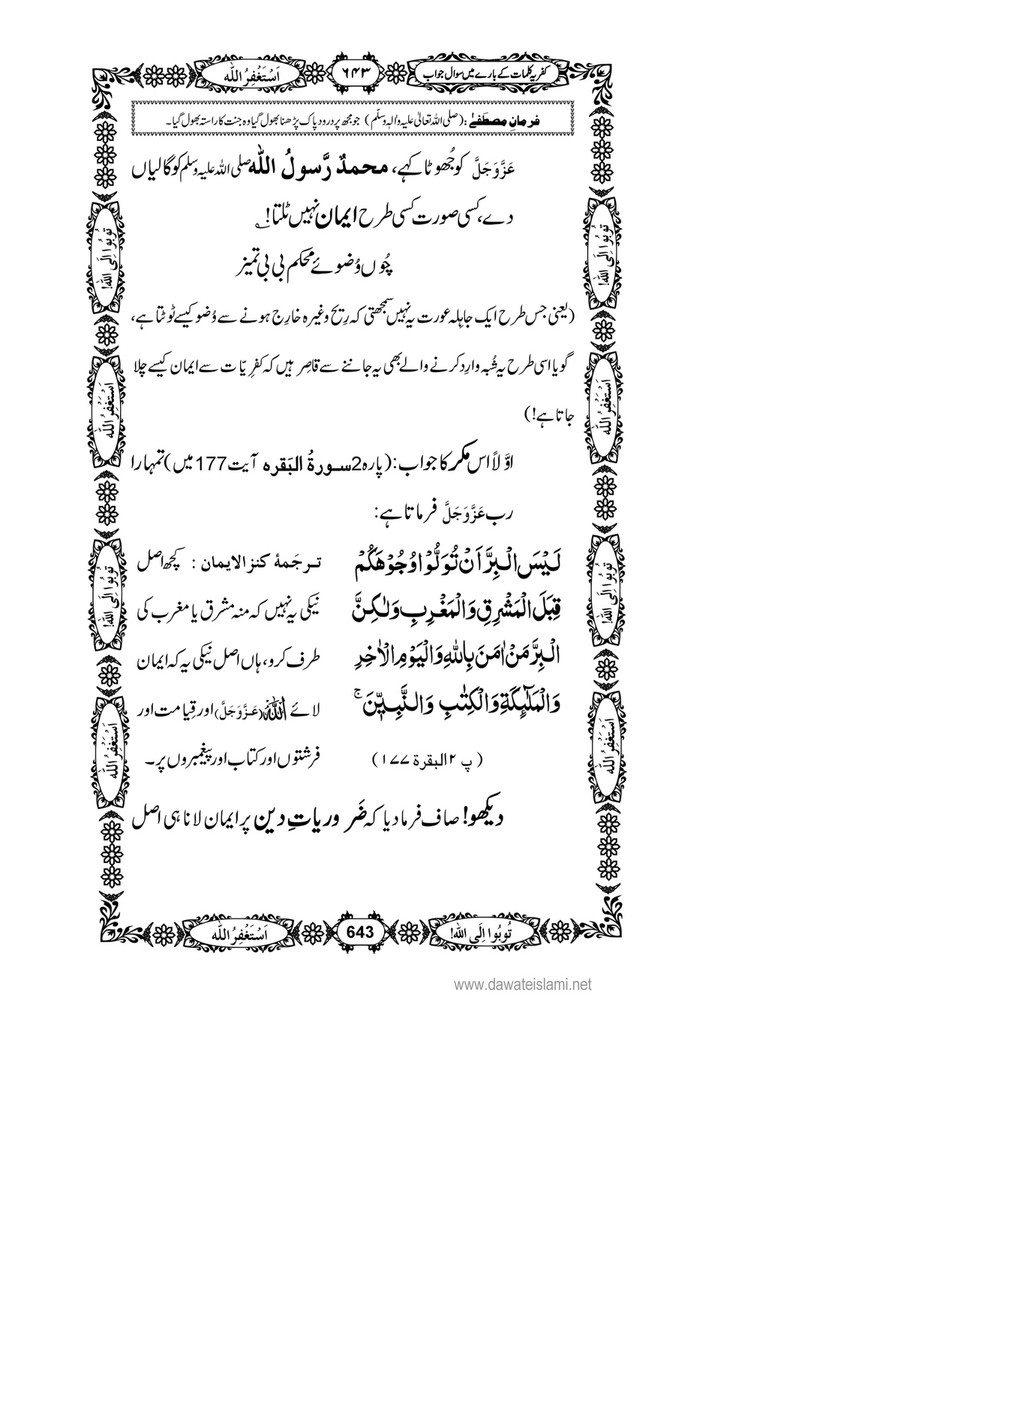 کفریہ کلمات کے بارے میں سوال جواب
٦٤٣
اَسْتَغْفِرُ اللّٰه
فرمانِ مصطَفٰے : (صلی اللہ تعالیٰ علیہ والہٖ وسلّم) جو مجھ پر درود پاک پڑھنا بھول گیا وہ جنت کا راستہ بھول گیا۔
عَزَّوَجَلَّ کو جُھوٹا کہے، محمدٌ رَّسولُ اللّٰه صلی اللہ علیہ وسلم کو گالیاں
دے، کسی صورت کسی طرح ایمان نہیں ٹلتا!؎
چُوں وُضوئے محکم بی بی تمیز
(یعنی جس طرح ایک جاہِلہ عورت یہ نہیں سمجھتی کہ رِیح وغیرہ خارِج ہونے سے وُضو کیسے ٹوٹتا ہے،
گویا اسی طرح یہ شُبہ وارِد کرنے والے بھی یہ جاننے سے قاصِر ہیں کہ کفرِیّات سے ایمان کیسے چلا
جاتا ہے!)
اوّلاً اس مکر کا جواب: (پارہ 2 سورةُ البَقره آیت 177 میں) تمہارا
رب عَزَّوَجَلَّ فرماتا ہے:
لَیْسَ الْبِرَّ اَنْ تُوَلُّوْا وُجُوْهَكُمْ
قِبَلَ الْمَشْرِقِ وَالْمَغْرِبِ وَلٰكِنَّ
الْبِرَّ مَنْ اٰمَنَ بِاللّٰهِ وَالْیَوْمِ الْاٰخِرِ
وَالْمَلٰٓىِٕكَةِ وَالْكِتٰبِ وَالنَّبِیّٖنَ ۚ
(پ ٢ البقرة ١٧٧)
ترجَمۂ کنز الایمان : کچھ اصل
نیکی یہ نہیں کہ منہ مشرق یا مغرب کی
طرف کرو، ہاں اصل نیکی یہ کہ ایمان
لائے اللّٰه (عَزَّوَجَلَّ) اور قِیامت اور
فرشتوں اور کتاب اور پیغمبروں پر۔
دیکھو! صاف فرما دیا کہ ضَروریاتِ دین پر ایمان لانا ہی اصل
تُوبُوا اِلَی اللّٰه!
اَسْتَغْفِرُ اللّٰه
تُوبُوا اِلَی اللّٰه!
اَسْتَغْفِرُ اللّٰه
تُوبُوا اِلَی اللّٰه!
اَسْتَغْفِرُ اللّٰه
تُوبُوا اِلَی اللّٰه!
اَسْتَغْفِرُ اللّٰه
تُوبُوا اِلَی اللّٰه!
643
اَسْتَغْفِرُ اللّٰه
www.dawateislami.net